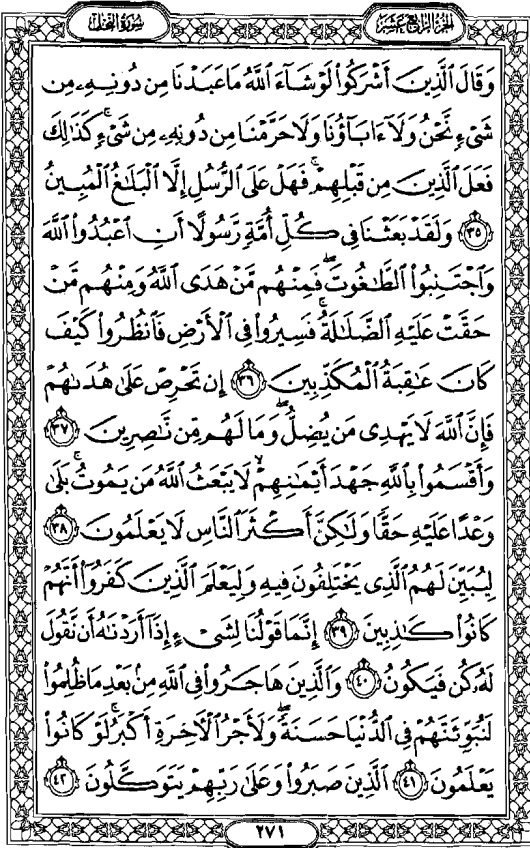 سورة النحل
الجزء الرابع عشر
وَقَالَ ٱلَّذِينَ أَشْرَكُوا۟ لَوْ شَآءَ ٱللَّهُ مَا عَبَدْنَا مِن دُونِهِۦ مِن
شَىْءٍ نَّحْنُ وَلَآ ءَابَآؤُنَا وَلَا حَرَّمْنَا مِن دُونِهِۦ مِن شَىْءٍ ۚ كَذَٰلِكَ
فَعَلَ ٱلَّذِينَ مِن قَبْلِهِمْ ۚ فَهَلْ عَلَى ٱلرُّسُلِ إِلَّا ٱلْبَلَٰغُ ٱلْمُبِينُ
٣٥ وَلَقَدْ بَعَثْنَا فِى كُلِّ أُمَّةٍ رَّسُولًا أَنِ ٱعْبُدُوا۟ ٱللَّهَ
وَٱجْتَنِبُوا۟ ٱلطَّٰغُوتَ ۖ فَمِنْهُم مَّنْ هَدَى ٱللَّهُ وَمِنْهُم مَّنْ
حَقَّتْ عَلَيْهِ ٱلضَّلَٰلَةُ ۚ فَسِيرُوا۟ فِى ٱلْأَرْضِ فَٱنظُرُوا۟ كَيْفَ
كَانَ عَٰقِبَةُ ٱلْمُكَذِّبِينَ ٣٦ إِن تَحْرِصْ عَلَىٰ هُدَىٰهُمْ
فَإِنَّ ٱللَّهَ لَا يَهْدِى مَن يُضِلُّ ۖ وَمَا لَهُم مِّن نَّٰصِرِينَ ٣٧
وَأَقْسَمُوا۟ بِٱللَّهِ جَهْدَ أَيْمَٰنِهِمْ ۙ لَا يَبْعَثُ ٱللَّهُ مَن يَمُوتُ ۚ بَلَىٰ
وَعْدًا عَلَيْهِ حَقًّا وَلَٰكِنَّ أَكْثَرَ ٱلنَّاسِ لَا يَعْلَمُونَ ٣٨
لِيُبَيِّنَ لَهُمُ ٱلَّذِى يَخْتَلِفُونَ فِيهِ وَلِيَعْلَمَ ٱلَّذِينَ كَفَرُوٓا۟ أَنَّهُمْ
كَانُوا۟ كَٰذِبِينَ ٣٩ إِنَّمَا قَوْلُنَا لِشَىْءٍ إِذَآ أَرَدْنَٰهُ أَن نَّقُولَ
لَهُۥ كُن فَيَكُونُ ٤٠ وَٱلَّذِينَ هَاجَرُوا۟ فِى ٱللَّهِ مِنۢ بَعْدِ مَا ظُلِمُوا۟
لَنُبَوِّئَنَّهُمْ فِى ٱلدُّنْيَا حَسَنَةً ۖ وَلَأَجْرُ ٱلْءَاخِرَةِ أَكْبَرُ ۚ لَوْ كَانُوا۟
يَعْلَمُونَ ٤١ ٱلَّذِينَ صَبَرُوا۟ وَعَلَىٰ رَبِّهِمْ يَتَوَكَّلُونَ ٤٢
٢٧١